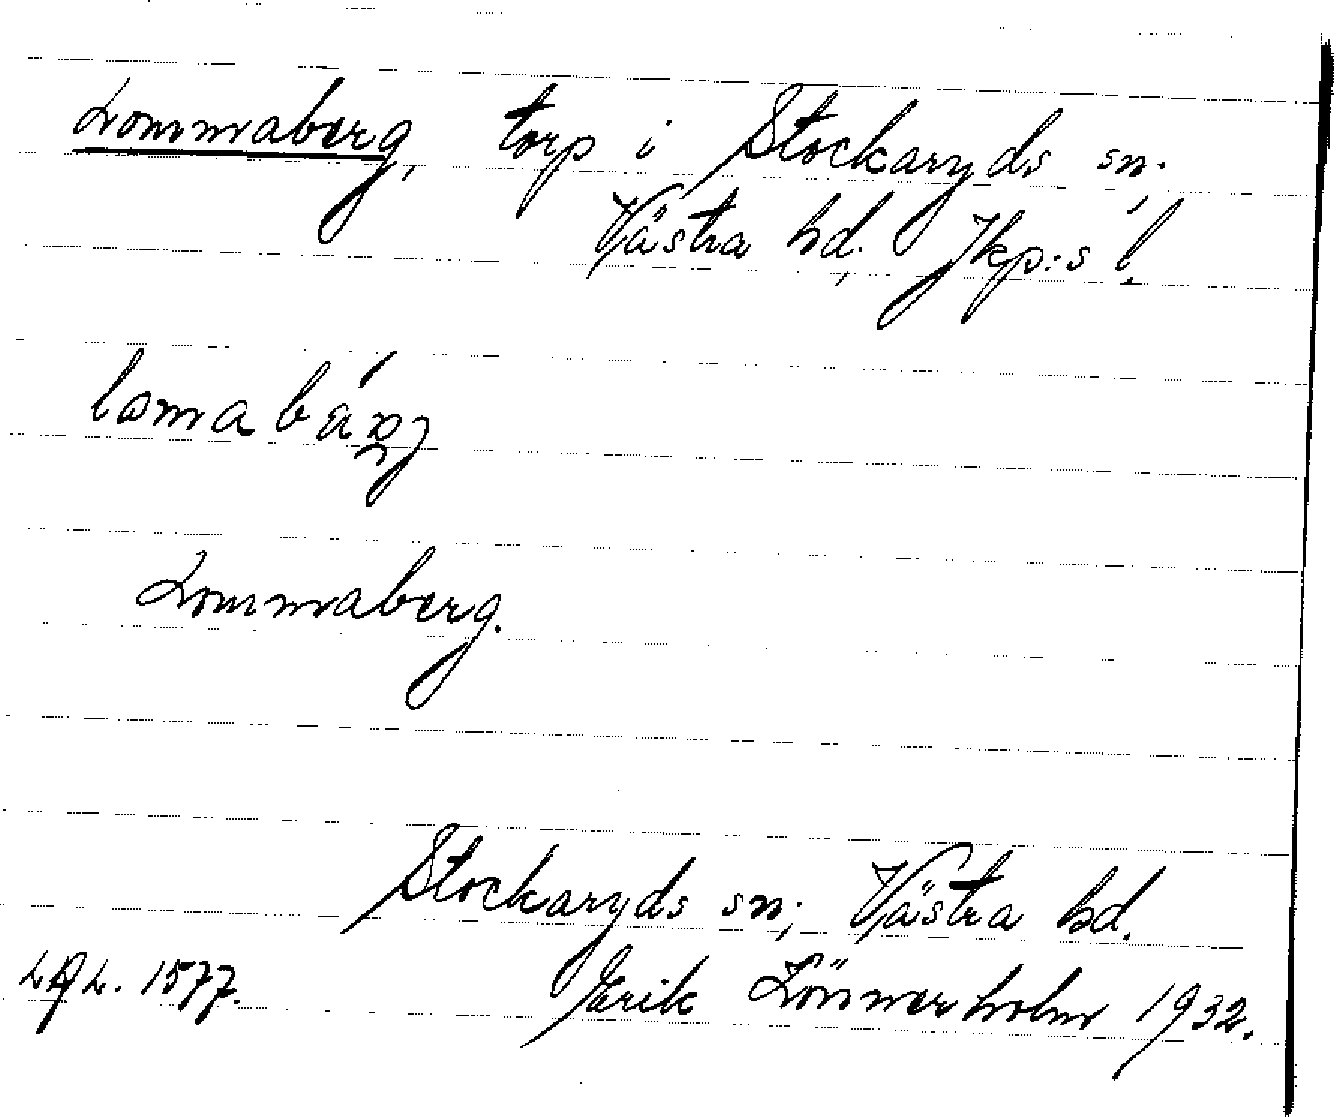 Lommaberg, torp i Stockaryds sn;
Västra hd, Jkp:s l.
Lommaberg.
Stockaryds sn; Västra hd.
1577. Erik Lönnerholm 1932.